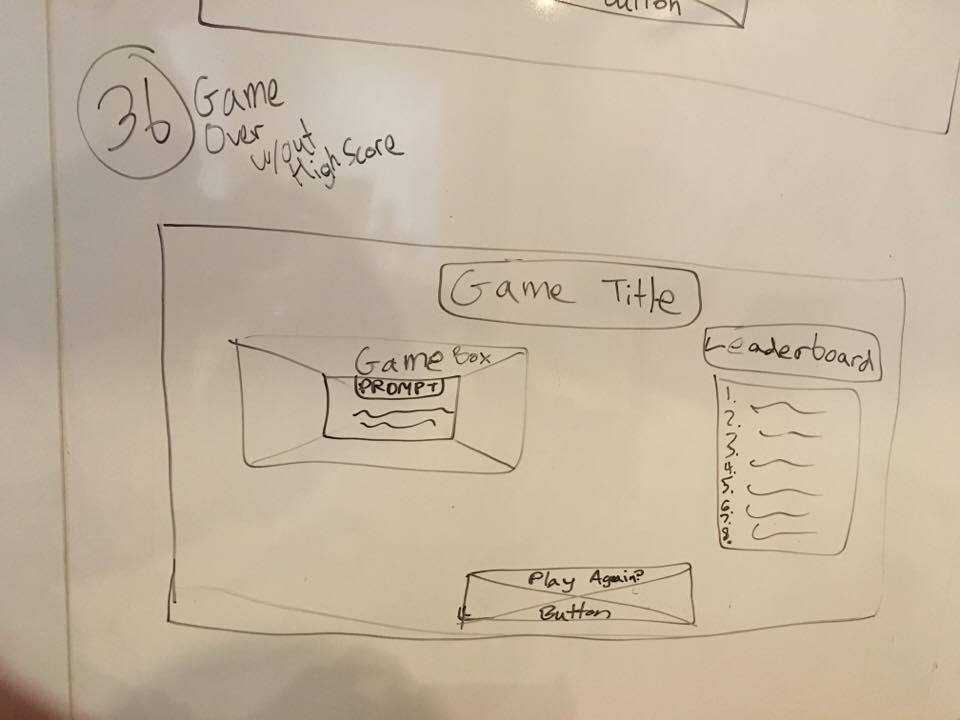 Button
3b
Game
Over
w/out
High Score
Game Title
Game Box
PROMPT
Leaderboard
1.
2.
3.
4.
5.
6.
7.
8.
Play Again?
Button